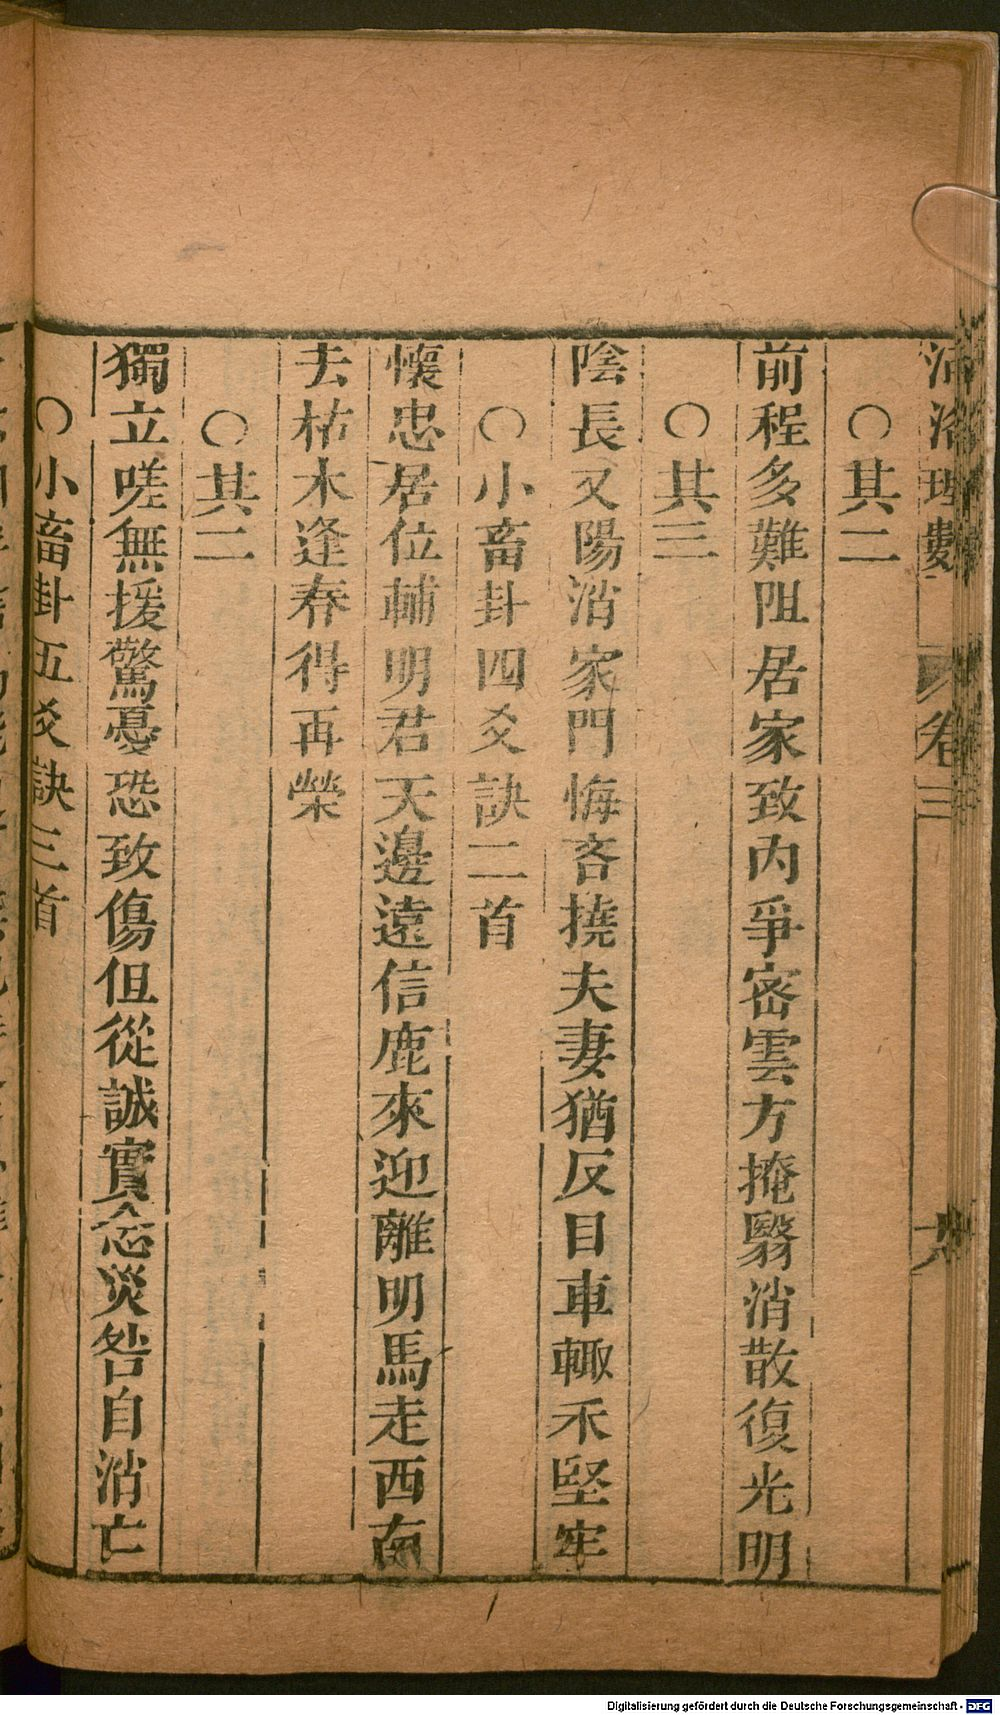 河洛理數 卷三 六
○其二
前程多難阻居家致內爭密雲方掩翳消散復光明
○其三
陰長又陽消家門悔吝撓夫妻猶反目車輙禾堅牢
○小畜卦四爻訣二首
懷忠居位輔明君天邊遠信鹿來迎離明馬走西南
去枯木逢春得再榮
○其二
獨立嗟無援驚憂恐致傷但從誠實念災咎自消亡
○小畜卦五爻訣三首
Digitalisierung gefördert durch die Deutsche Forschungsgemeinschaft - DFG